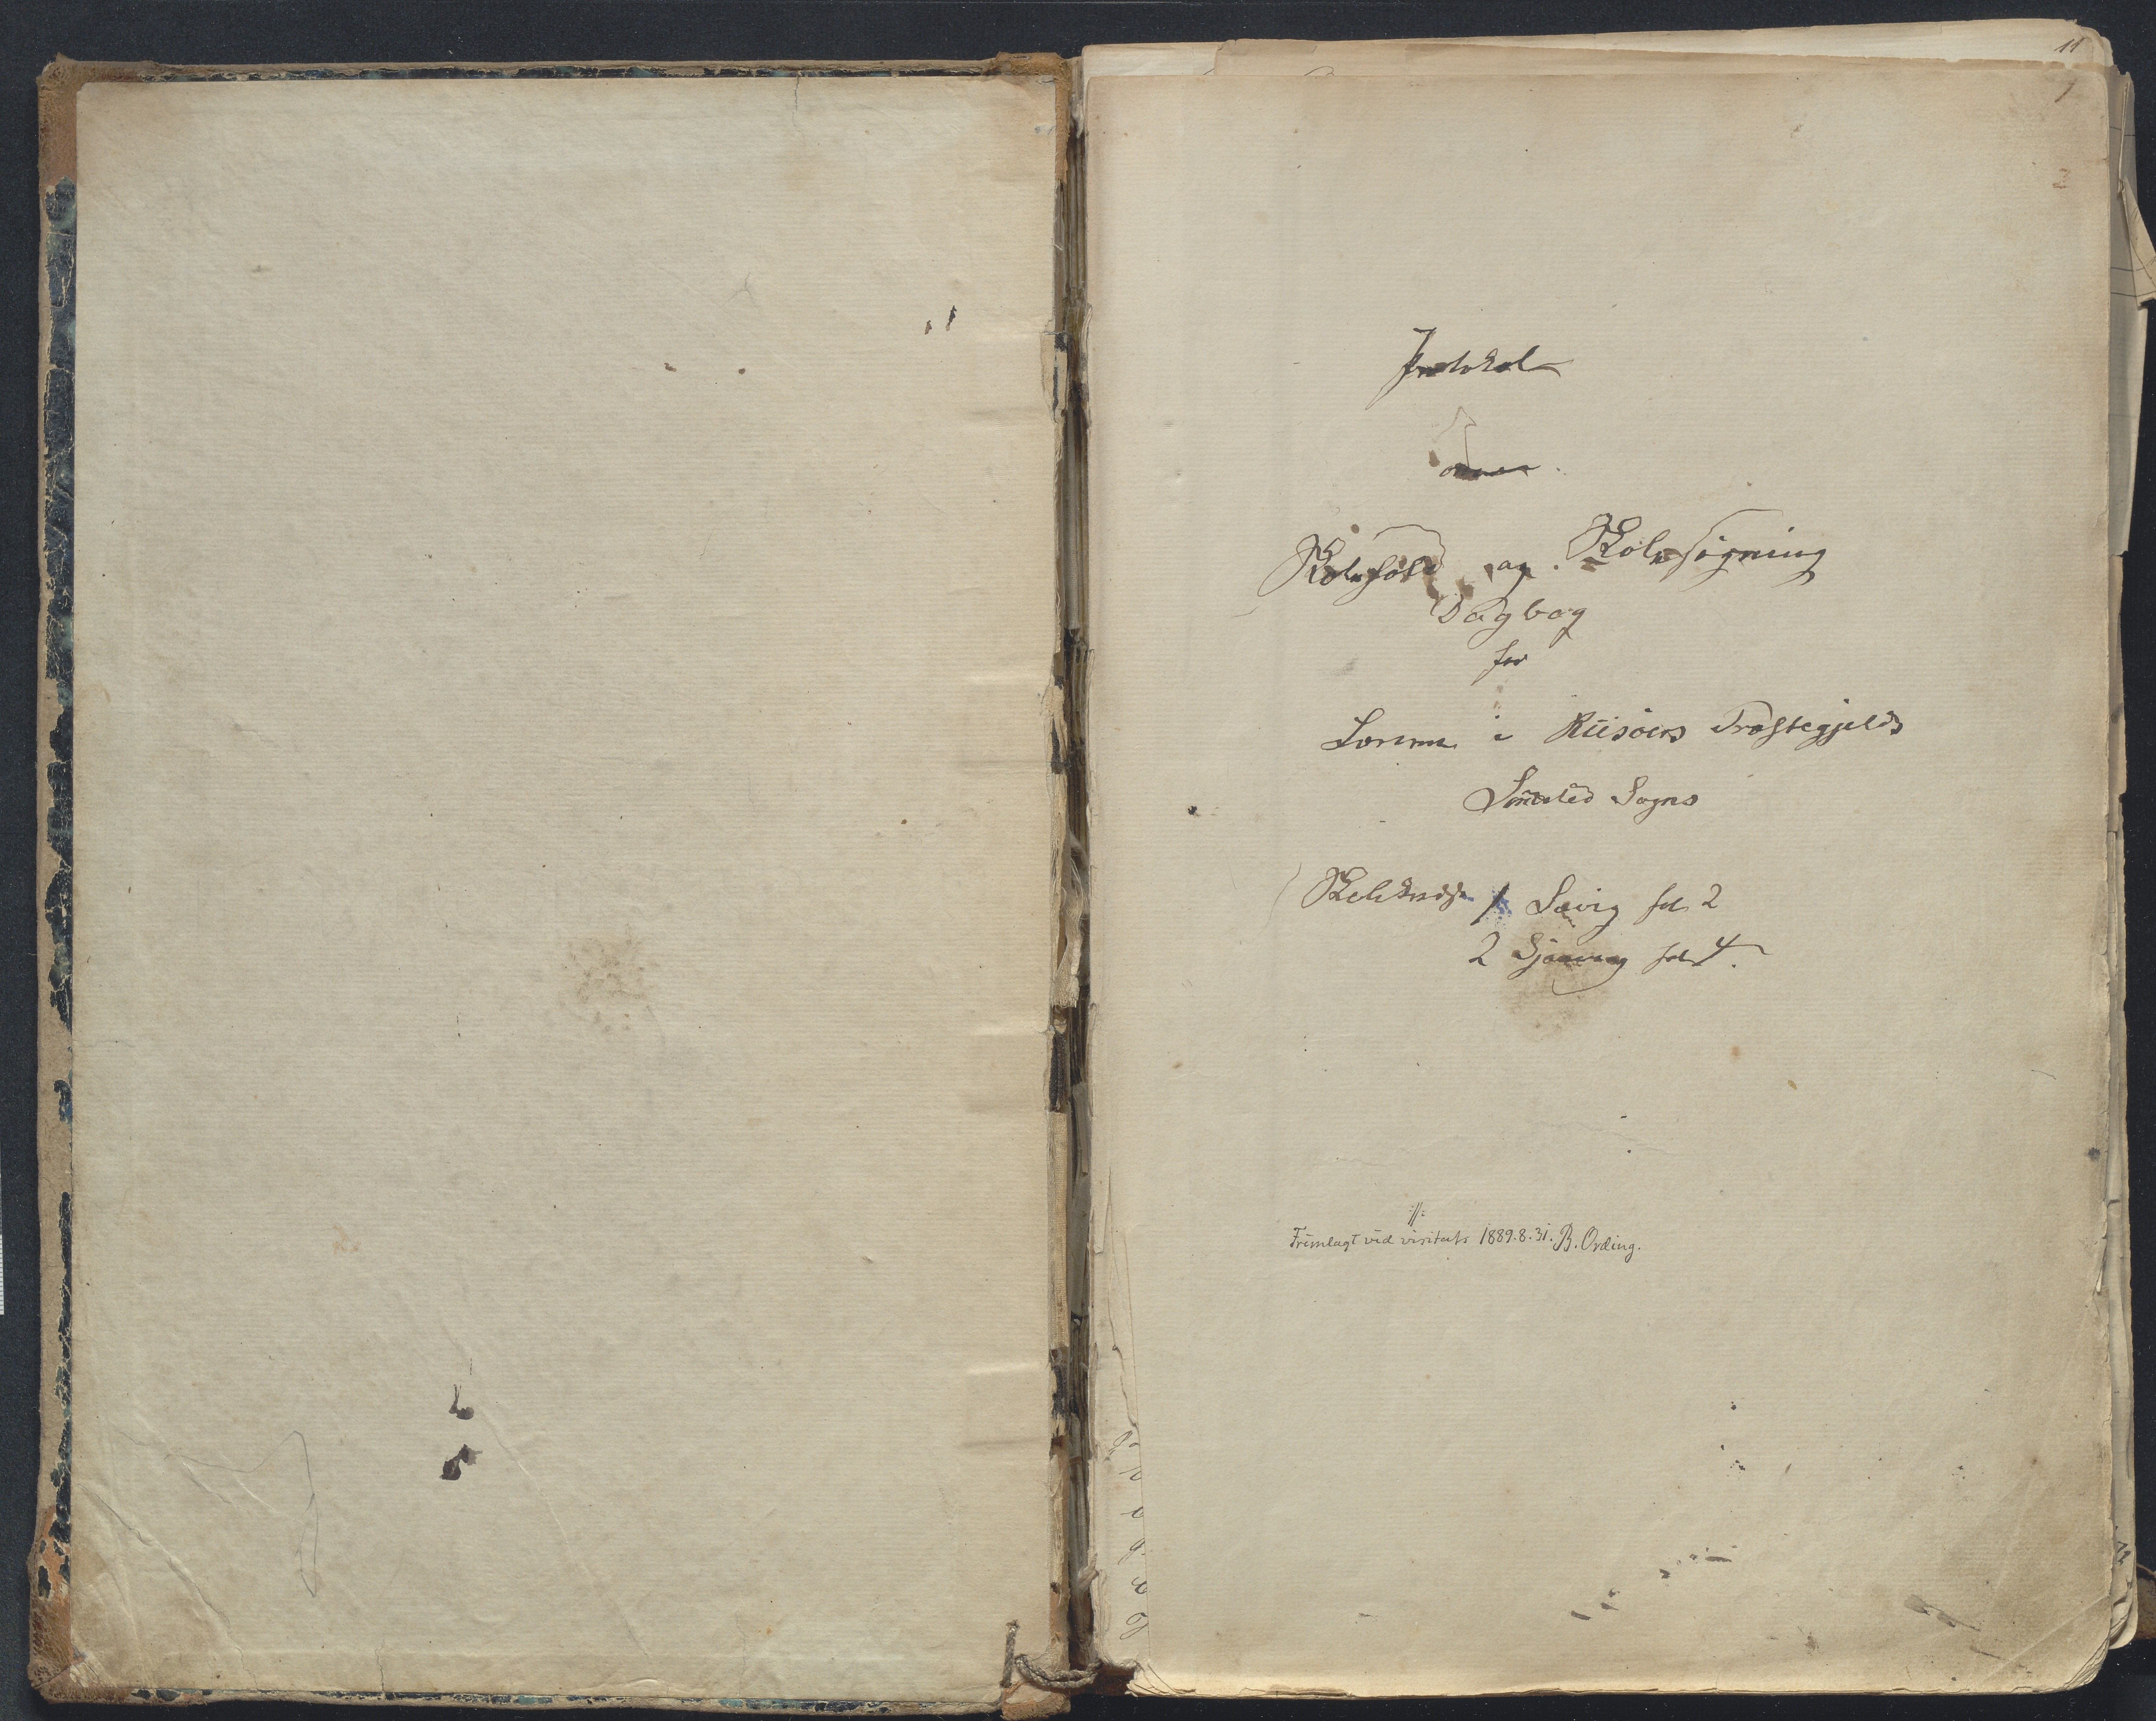 11
1
Protokol
over
Skolehold og Skolesøgning
Dagbog
for
i Riisøers Præstegjelds
Søndeled Sogns
Skolekreds 1 Sævig fol 2
2 fol 4.
://:
Fremlagt ved visitats 1889.8.31. B. Ording.